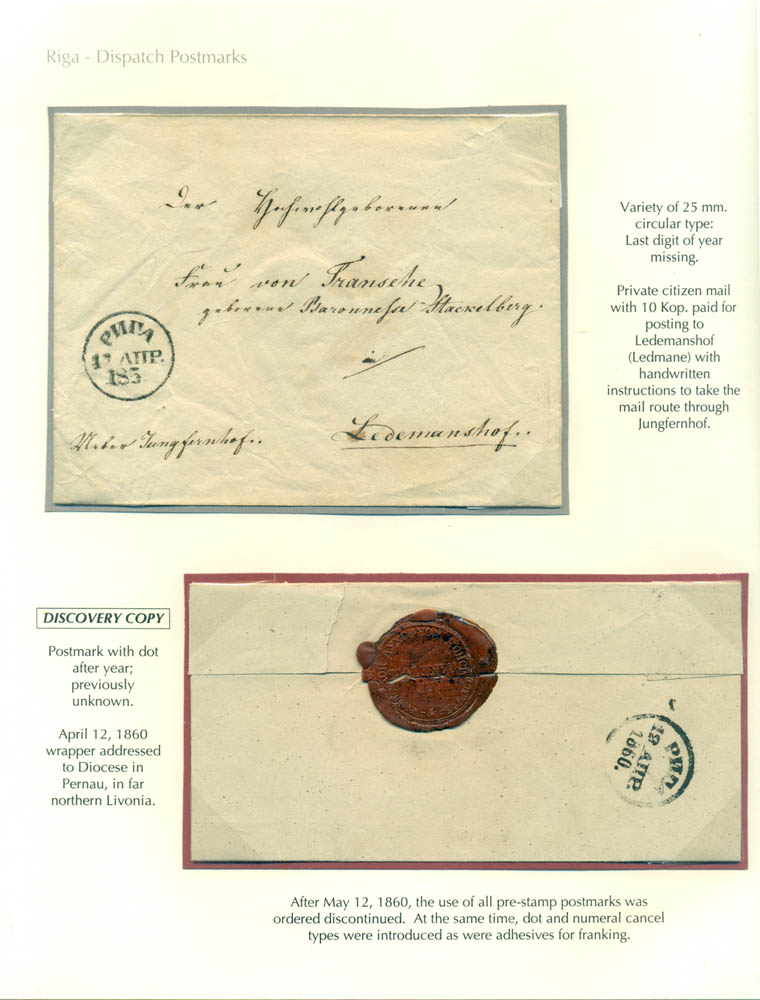 Riga - Dispatch Postmarks
Der Hochwohlgeborenen
Frau von Transehe
geborene Baronnesse Stackelberg.
in
Ledemanshof..
Ueber Jungfernhof..
РИГА
АПР.
185
Variety of 25 mm.
circular type:
Last digit of year
missing.
Private citizen mail
with 10 Kop. paid for
posting to
Ledemanshof
(Ledmane) with
handwritten
instructions to take the
mail route through
Jungfernhof.
DISCOVERY COPY
Postmark with dot
after year;
previously
unknown.
April 12, 1860
wrapper addressed
to Diocese in
Pernau, in far
northern Livonia.
РИГА
12 АПР.
1860.
After May 12, 1860, the use of all pre-stamp postmarks was
ordered discontinued. At the same time, dot and numeral cancel
types were introduced as were adhesives for franking.